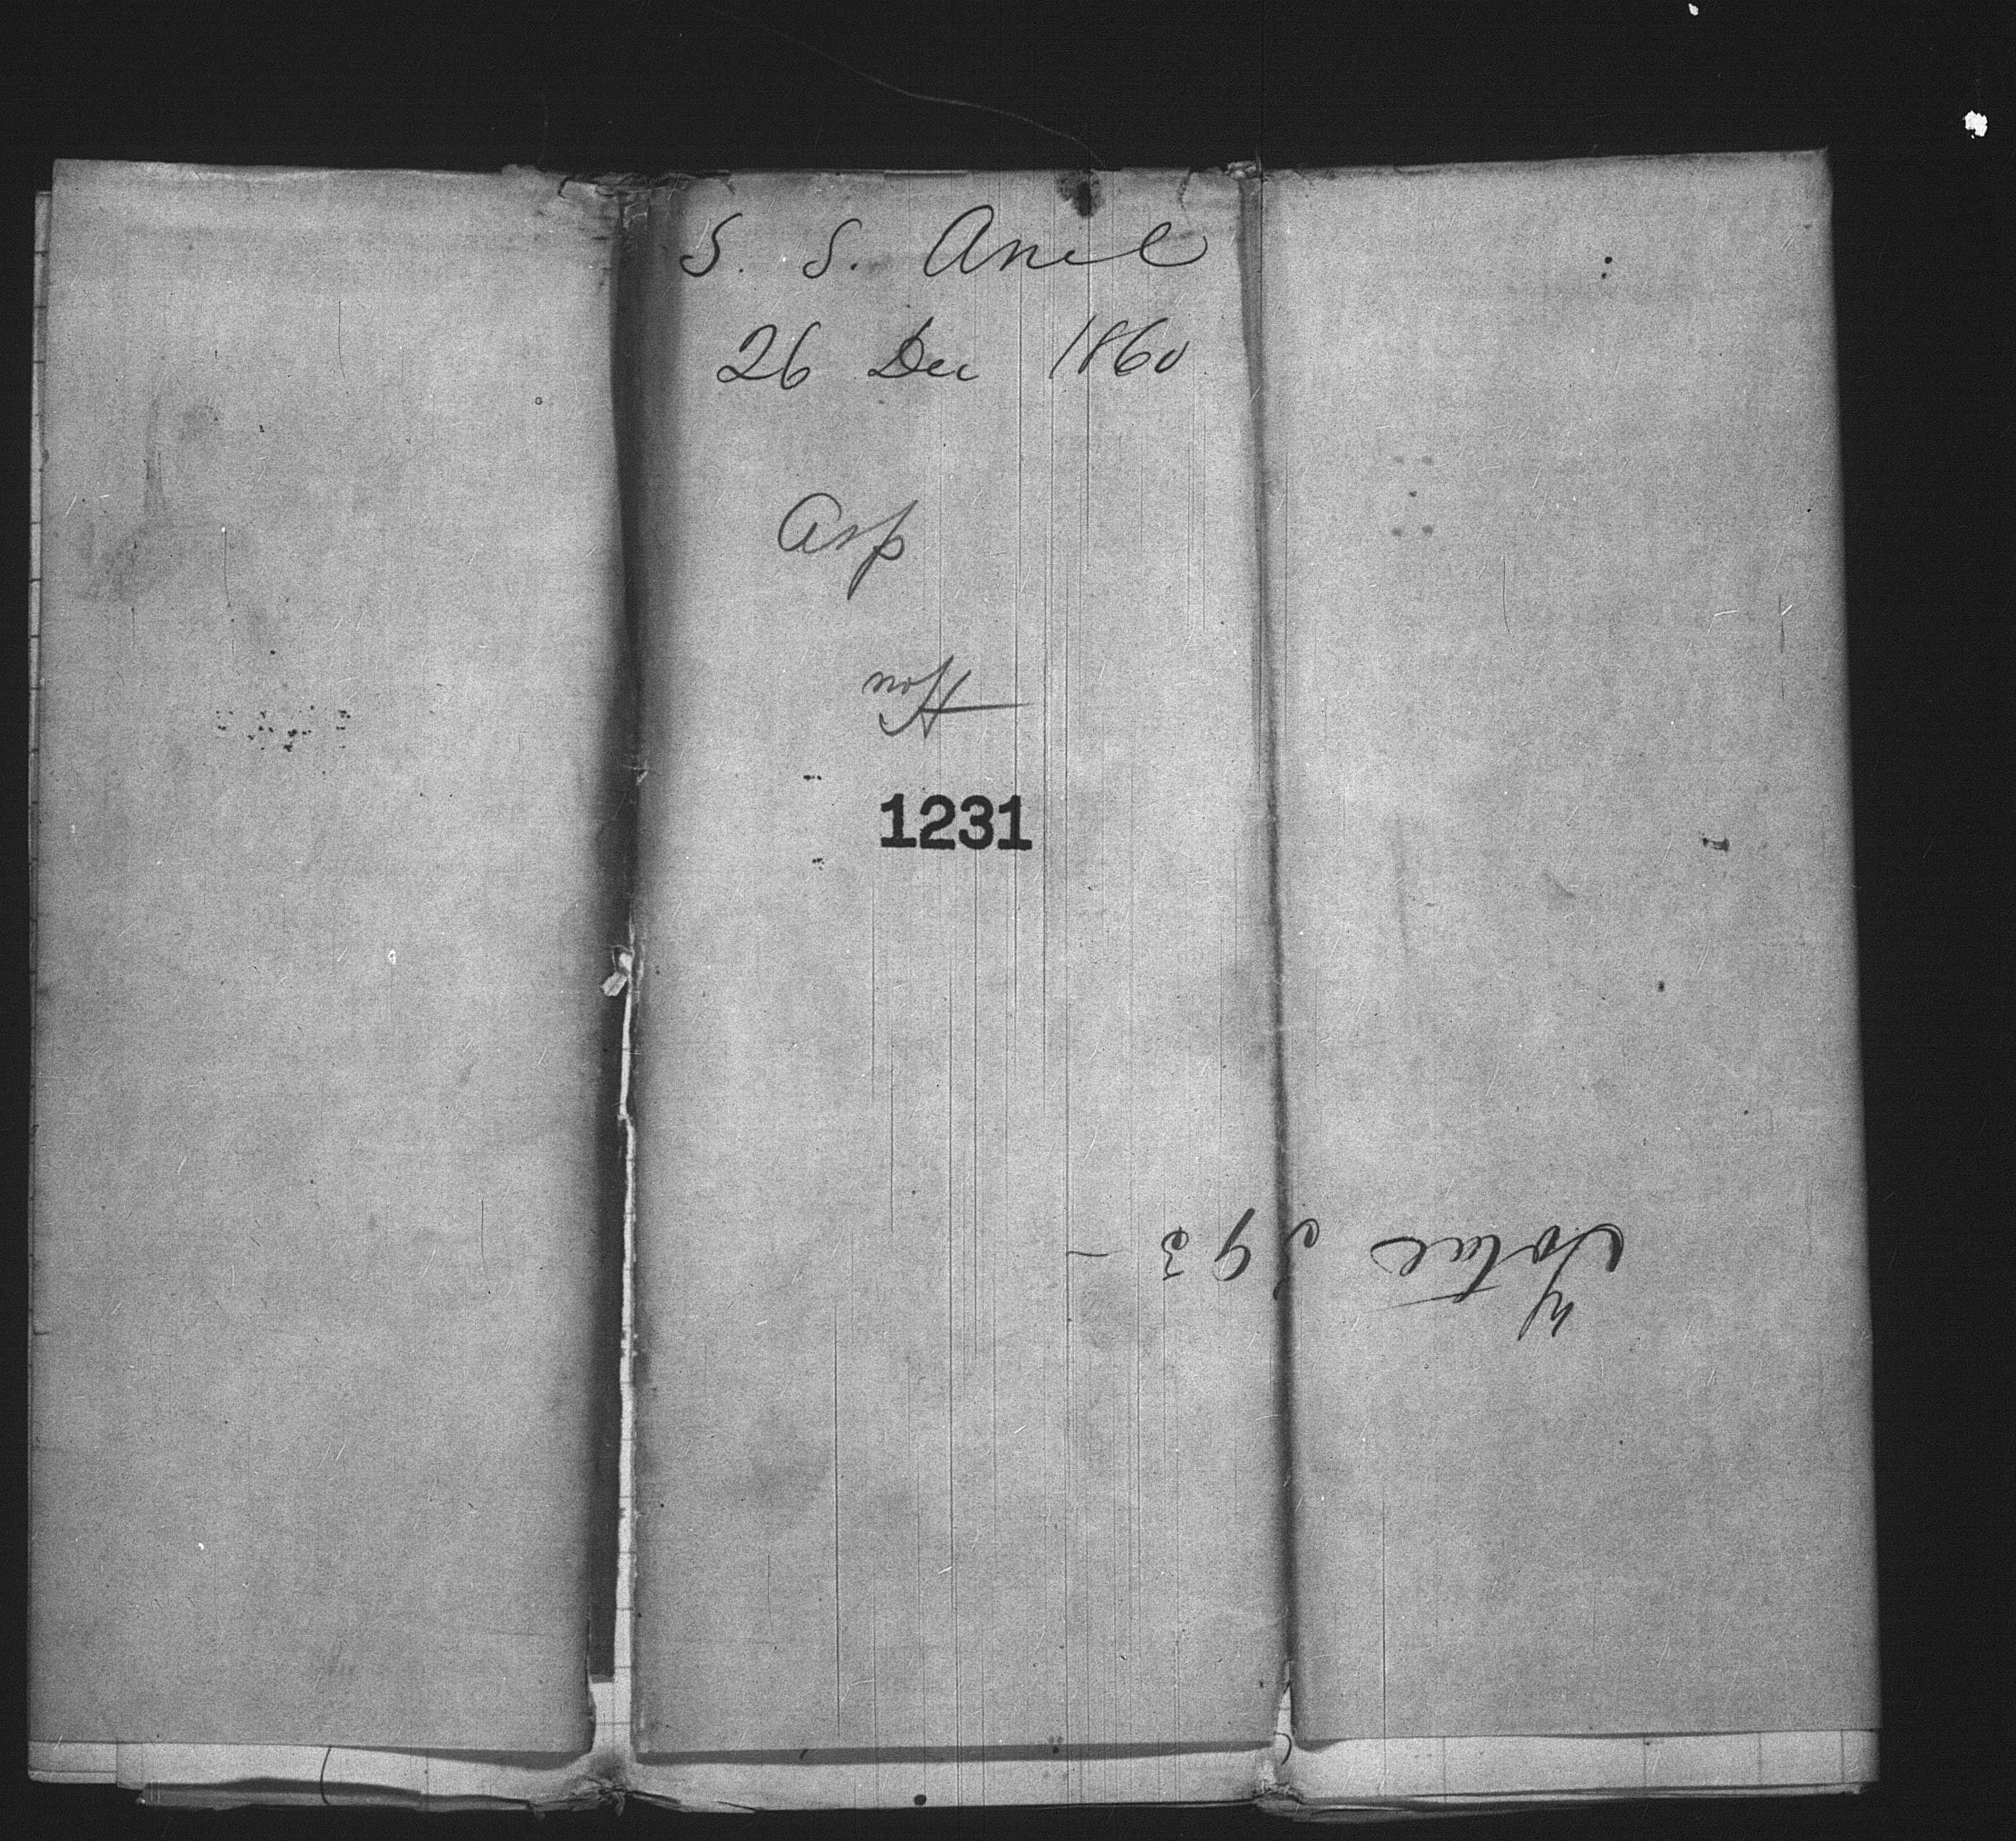 S. S. Ariel
26 Dec 1860
Asp
1231
Total 293 -